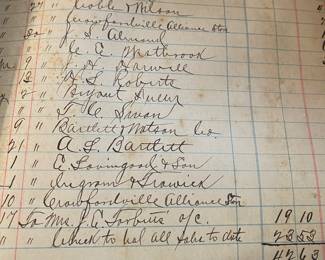 27 " Noble & Wilson
" Crawfordville Alliance Store
20 " J. S. Almond
" C. Westbrook
9 " Harwell
13 " S. Roberts
2 " Bryant
" T. C. Swan
9 " Bartlett & Watson Co.
21 " A. S. Bartlett
1 " C. Lovingood & Son
1 " Ingram & Trawick
10 " Crawfordville Alliance Store
17 To Mrs. J. C. Torbitts a/c. 19 10
" Check to bal all sales to date 23 53
42 63